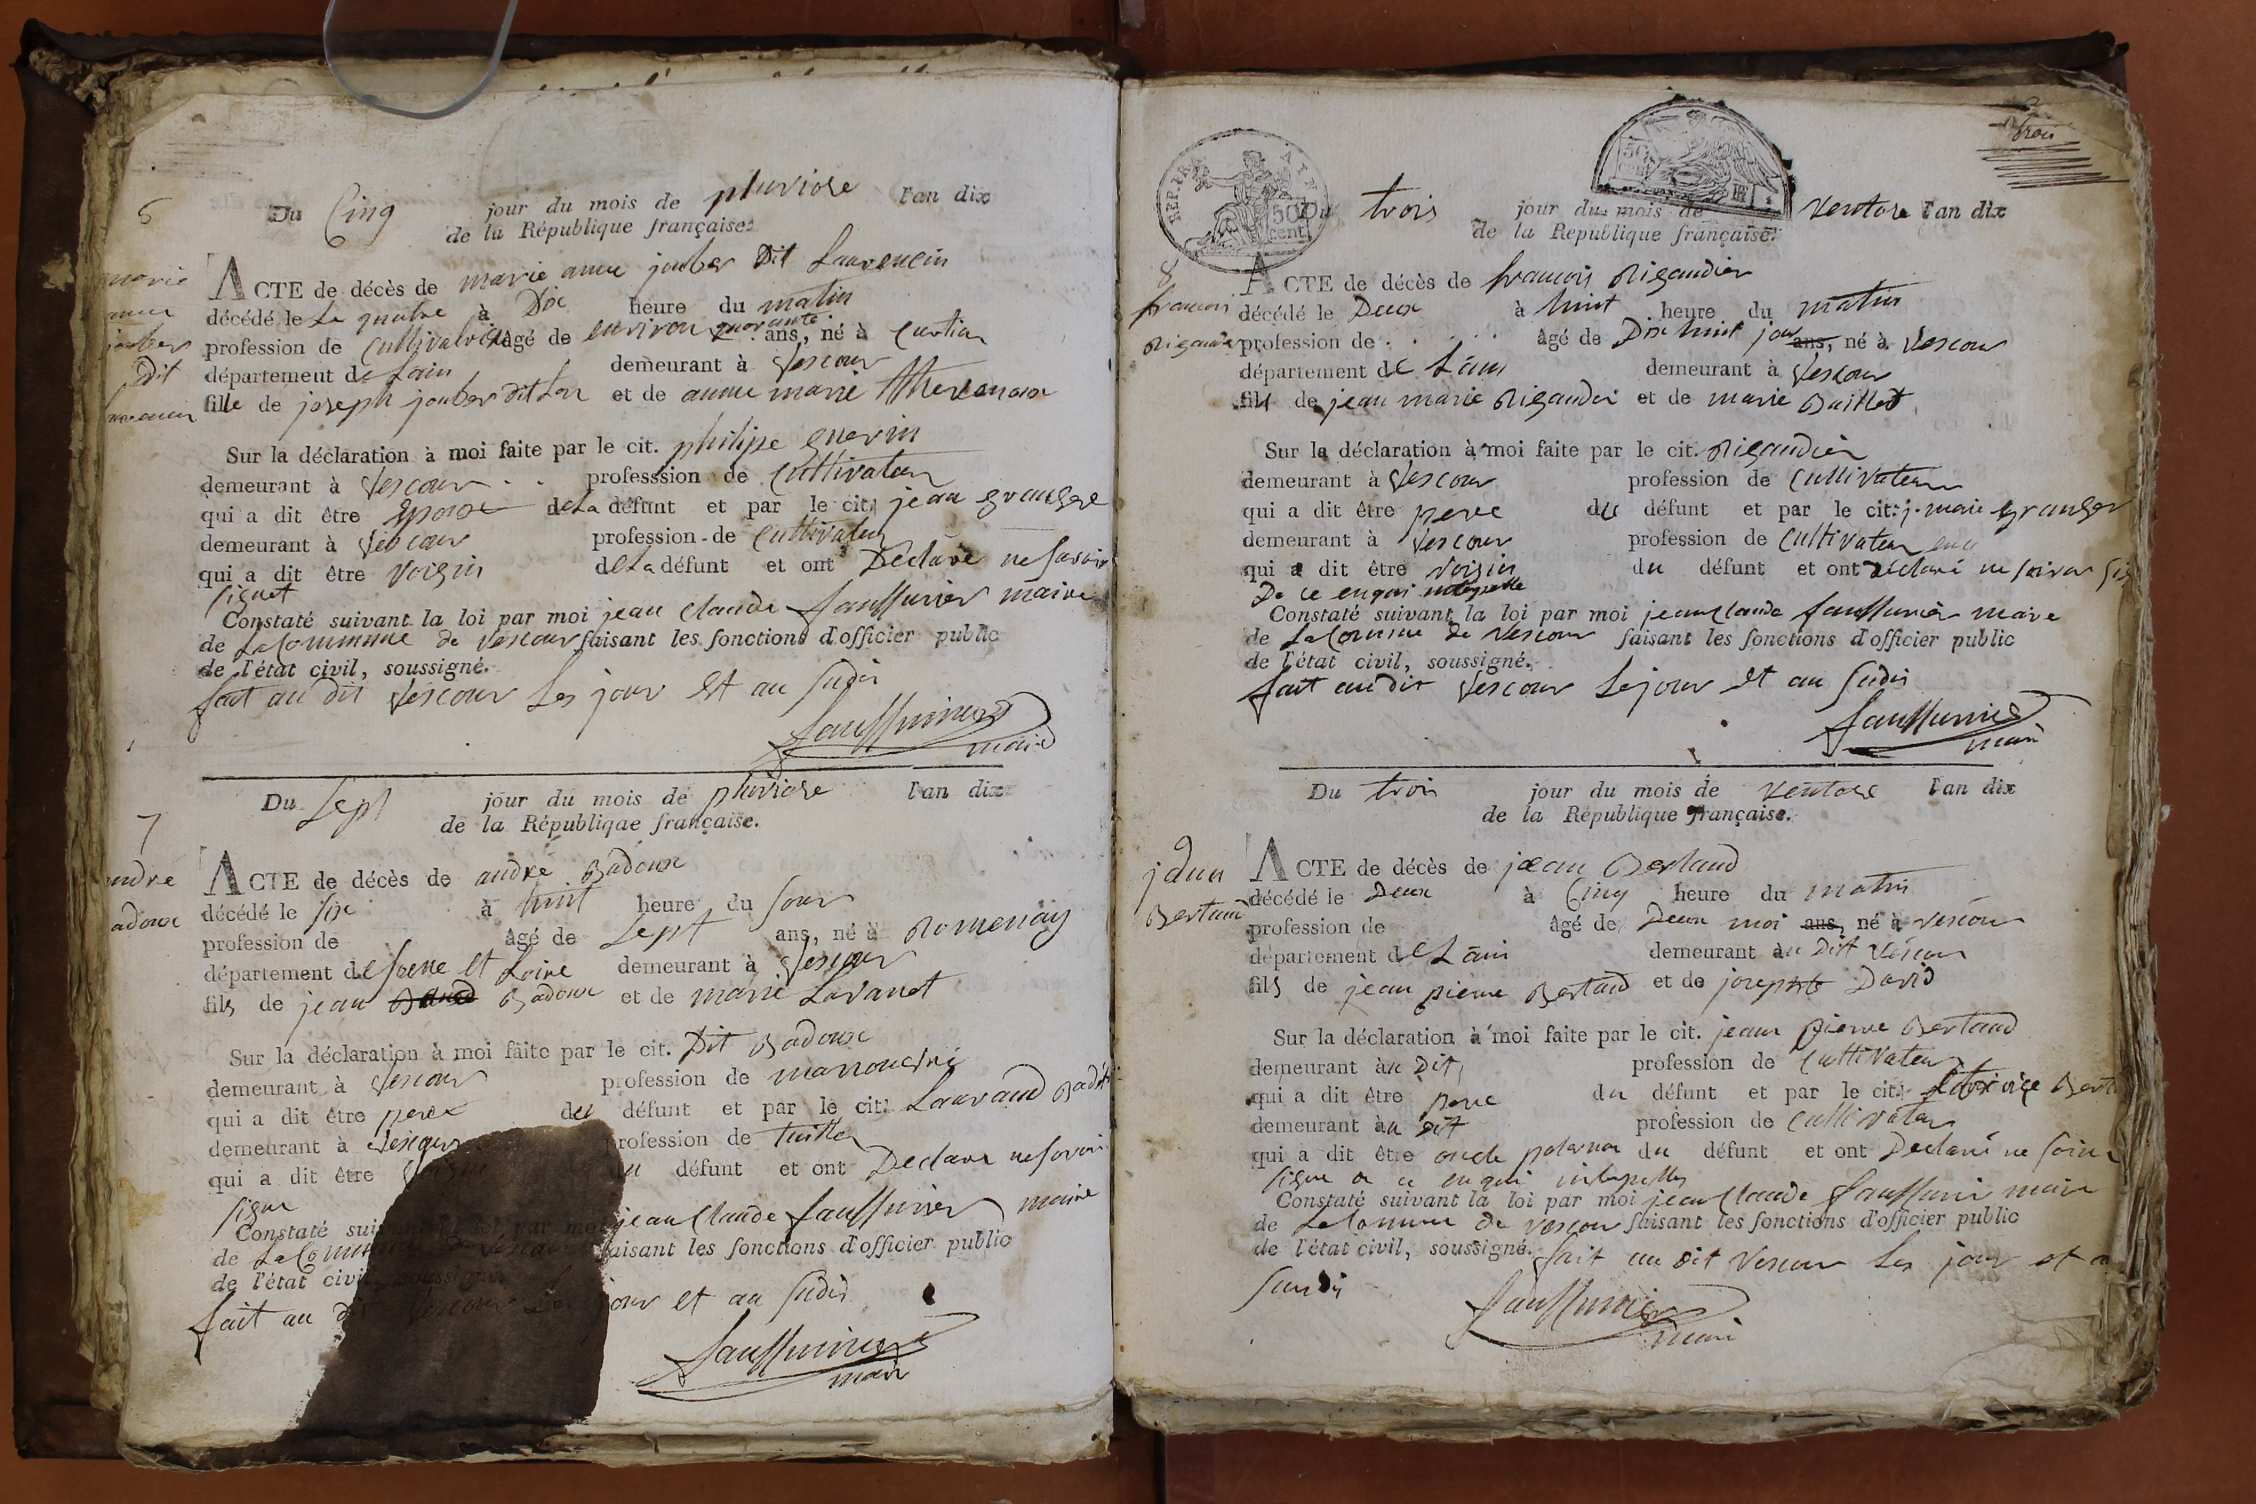 6
Du Cinq jour du mois de pluviose l'an dix
de la République française.
marie
anne
jouber
dit
laurencin
ACTE de décès de marie anne jouber Dit Laurencin
décédé le Le quatre à Dix heure du matin
profession de Cultivatrice âgé de environ quarante ans, né à Curtia
département de Lain demeurant à Vescour
fille de joseph jouber dit Lor et de anne marie
Sur la déclaration à moi faite par le cit. philipe guerin
demeurant à Vescour profession de Cultivateur
qui a dit être Epoux de La défunt et par le cit. jean grangere
demeurant à Vescour profession de Cultivateur
qui a dit être Voisin de La défunt et ont Déclaré ne Savoir
Signet
Constaté suivant la loi par moi jean Claude Sauffunier maire
de La Commune de Vescour faisant les fonctions d'officier public
de l'état civil, soussigné.
fait au dit Vescour Les jour et an Sudis
Sauffunier
maire
Du Sept jour du mois de pluviose l'an dix
de la République française.
7
andré
adoux
ACTE de décès de andré Badoux
décédé le Six à huit heure du Soir
profession de âgé de Sept ans, né à Romenay
département de Soene et Loire demeurant à Vescour
fils de jean Badoux et de marie Lavanet
Sur la déclaration à moi faite par le cit. Dit Badoux
demeurant à Vescour profession de
qui a dit être pere du défunt et par le cit. Laurand
demeurant à Vescour profession de
qui a dit être du défunt et ont Declaré ne Savoir
Signe
Constaté suivant la loi par moi jean Claude Sauffunier maire
de La Commune de Vescour faisant les fonctions d'officier public
de l'état civil, soussigné
fait au dit Vescour Les jour et an Sudis
Sauffunier
maire
trois
REP. FRA.
AIN
50
cent.
Du trois jour du mois de Ventose l'an dix
de la République française.
8
francois
Rigaudie
ACTE de décès de francois Rigaudier
décédé le Deux à huit heure du matin
profession de . . . . . âgé de Dix huit jour ans, né à Vescour
département de Lain demeurant à Vescour
fils de jean marie Rigaudié et de marie Baillet
Sur la déclaration à moi faite par le cit. Rigaudier
demeurant à Vescour profession de Cultivateur
qui a dit être pere du défunt et par le cit. j. marie granger
demeurant à Vescour profession de Cultivateur
qui a dit être Voisin du défunt et ont déclaré ne Savoir Sig
De ce enquis interpellé
Constaté suivant la loi par moi jean Claude Sauffunier maire
de La Comune de Vescour faisant les fonctions d'officier public
de l'état civil, soussigné.
fait audit Vescour Le jour et an Sudis
Sauffunier
maire
Du trois jour du mois de Ventose l'an dix
de la République française.
9
jean
Bertaud
ACTE de décès de jean Bertaud
décédé le Deux à Cinq heure du matin
profession de âgé de Deux moi ans, né à Vescour
département de Lain demeurant au Dit Vescour
fils de jean pierre Bertaud et de josephte David
Sur la déclaration à moi faite par le cit. jean pierre Bertaud
demeurant au Dit profession de Cultivateur
qui a dit être pere du défunt et par le cit.
demeurant au Dit profession de Cultivateur
qui a dit être oncle paternel du défunt et ont Declaré ne Savoir
Signe de ce enquis interpellés
Constaté suivant la loi par moi jean Claude Sauffunier maire
de La Comune de Vescour faisant les fonctions d'officier public
de l'état civil, soussigné. fait au dit Vescour Les jour et a
Sudis
Sauffunier
maire